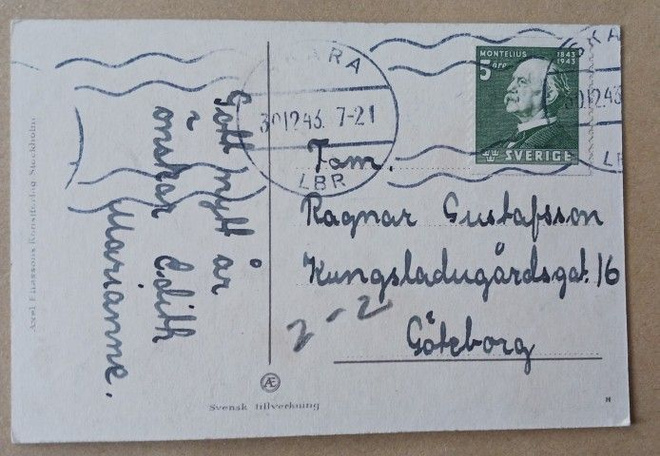 Gott nytt år
önskar Edith
Marianne.
SKARA
30.12.43. 7-21
LBR
MONTELIUS 1843 1943
5 öre
SVERIGE
Fam.
Ragnar Gustafsson
Kungsladugårdsgat. 16
2-2
Göteborg
Axel Eliassons Konstförlag Stockholm
Æ
Svensk tillverkning